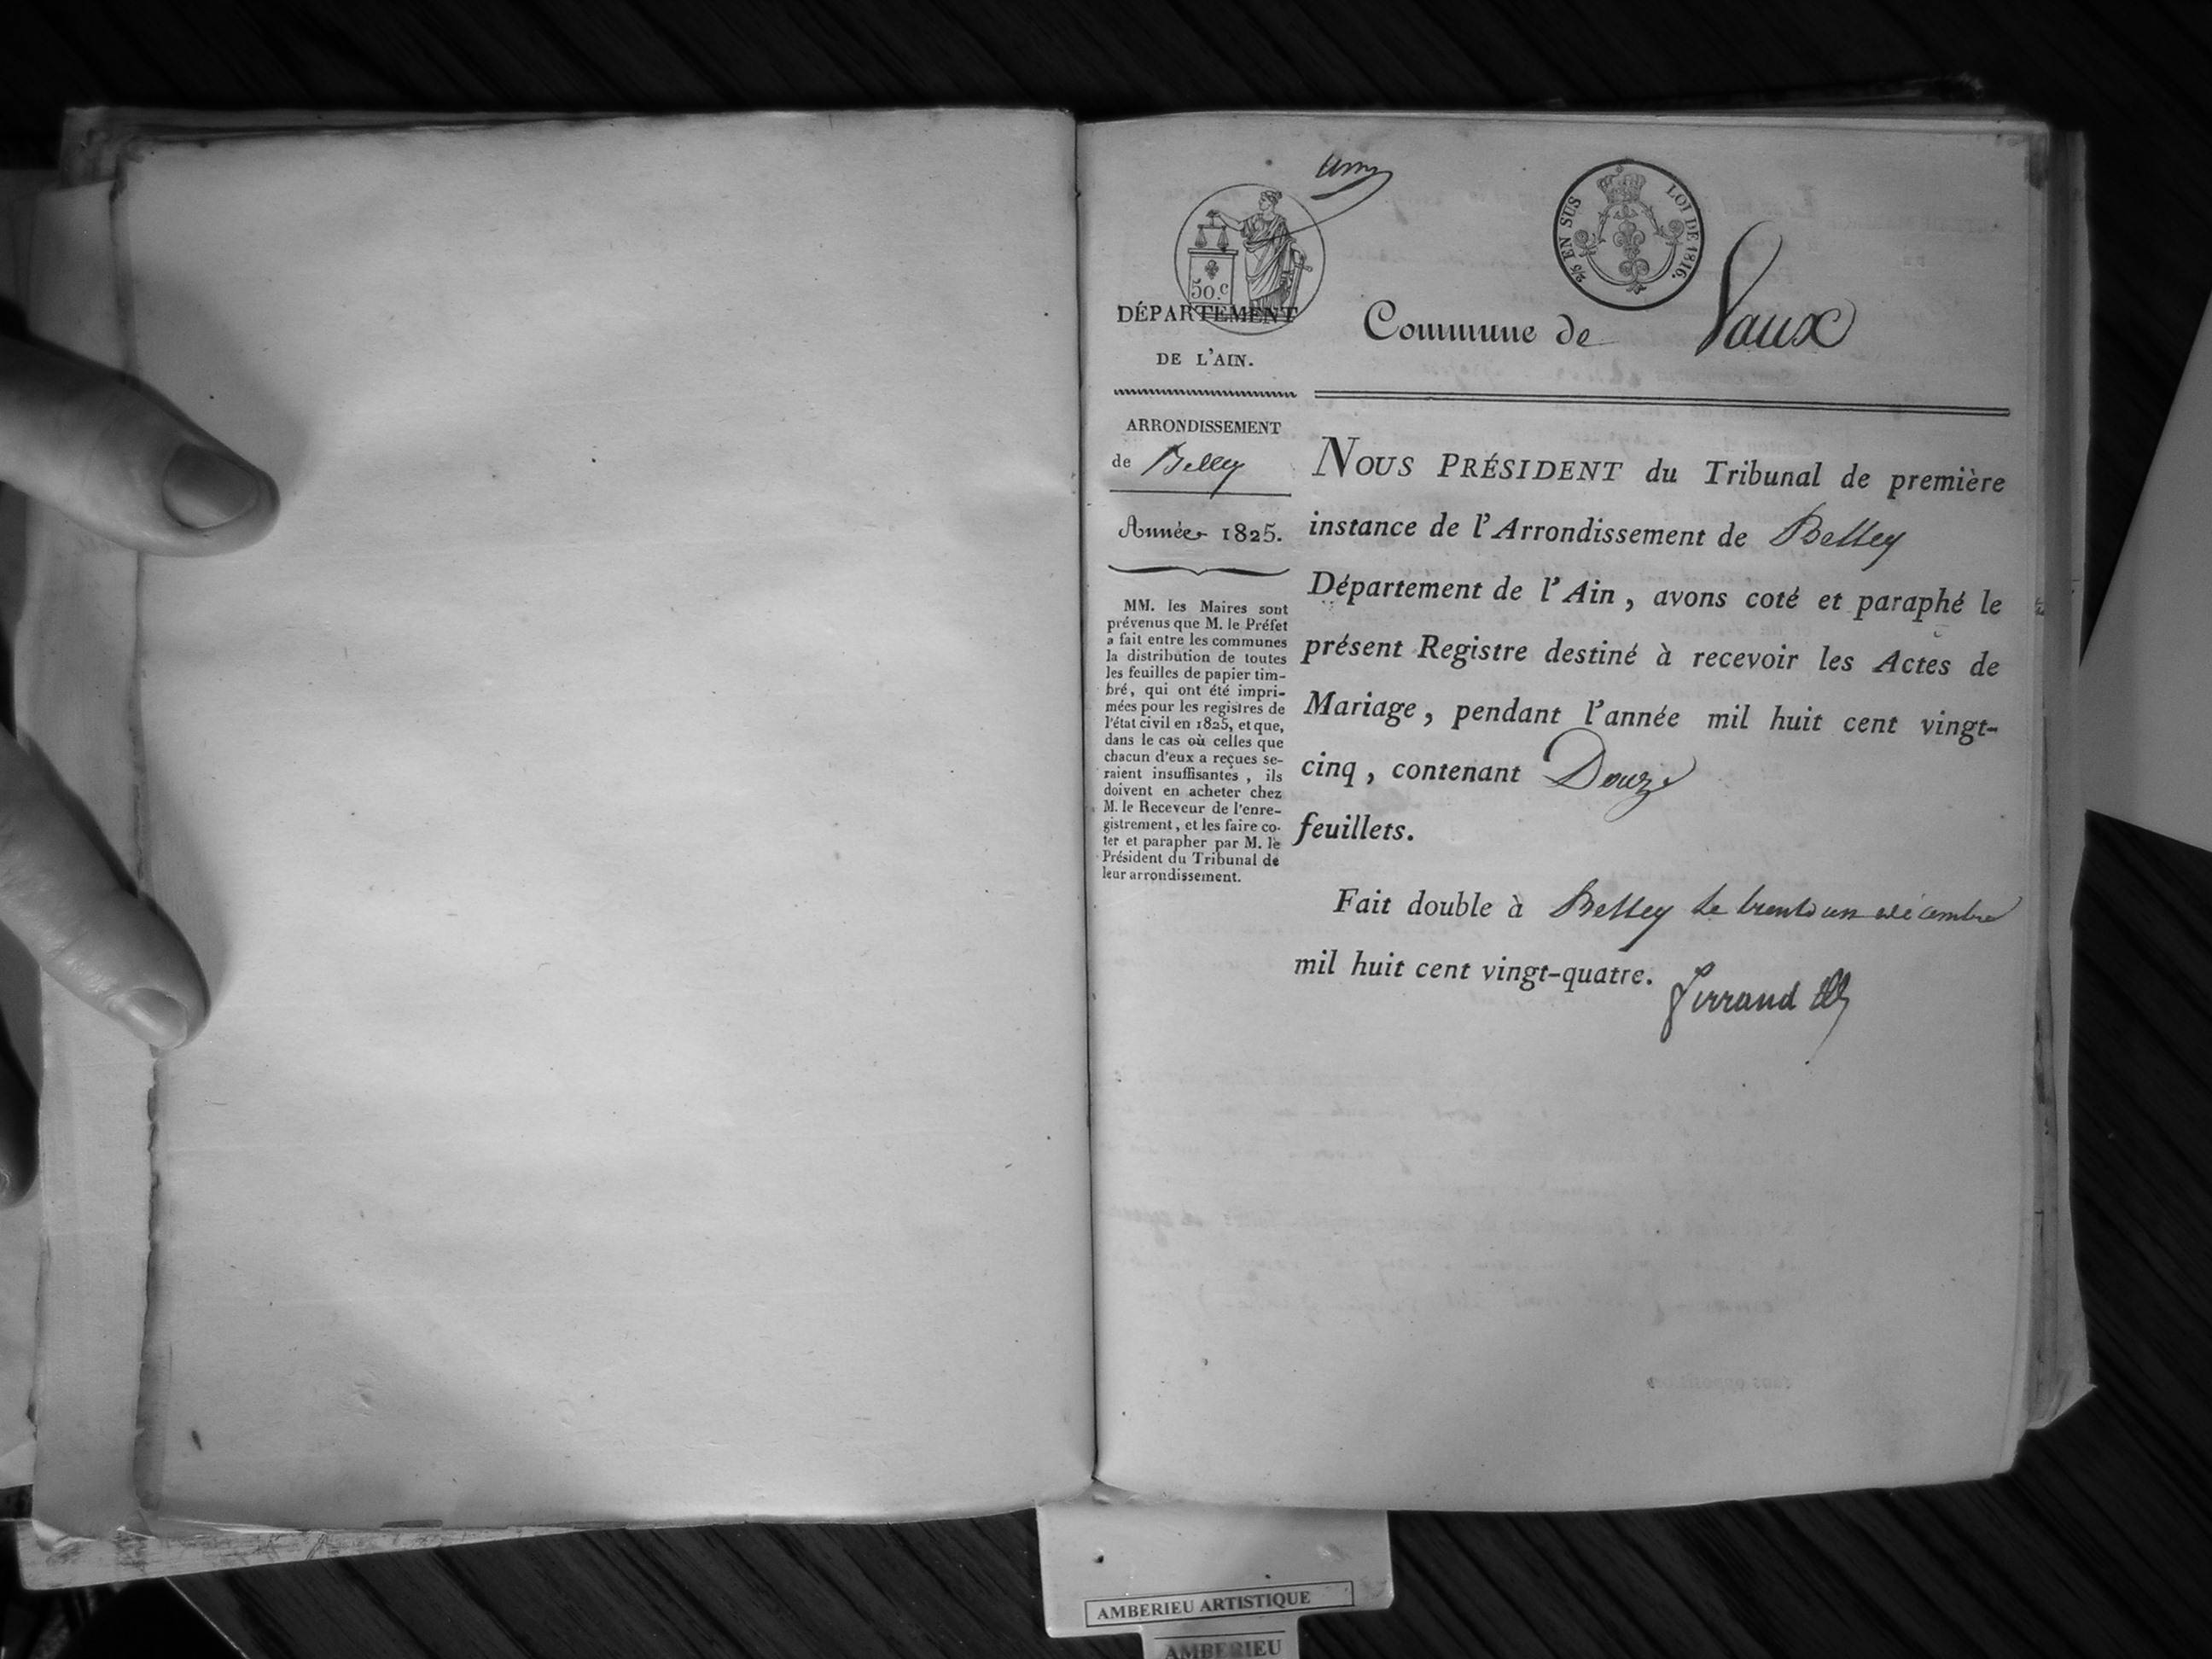 50.c
2/5 EN SUS
LOI DE 1816.
DÉPARTEMENT
DE L'AIN.
Commune de Vaux
ARRONDISSEMENT
de Belley
Année 1825.
MM. les Maires sont
prévenus que M. le Préfet
a fait entre les communes
la distribution de toutes
les feuilles de papier tim-
bré, qui ont été impri-
mées pour les registres de
l'état civil en 1825, et que,
dans le cas où celles que
chacun d'eux a reçues se-
raient insuffisantes, ils
doivent en acheter chez
M. le Receveur de l'enre-
gistrement, et les faire co-
ter et parapher par M. le
Président du Tribunal de
leur arrondissement.
NOUS PRÉSIDENT du Tribunal de première
instance de l'Arrondissement de Belley
Département de l'Ain, avons coté et paraphé le
présent Registre destiné à recevoir les Actes de
Mariage, pendant l'année mil huit cent vingt-
cinq, contenant Douze
feuillets.
Fait double à Belley le trente un décembre
mil huit cent vingt-quatre.
AMBERIEU ARTISTIQUE
AMBERIEU